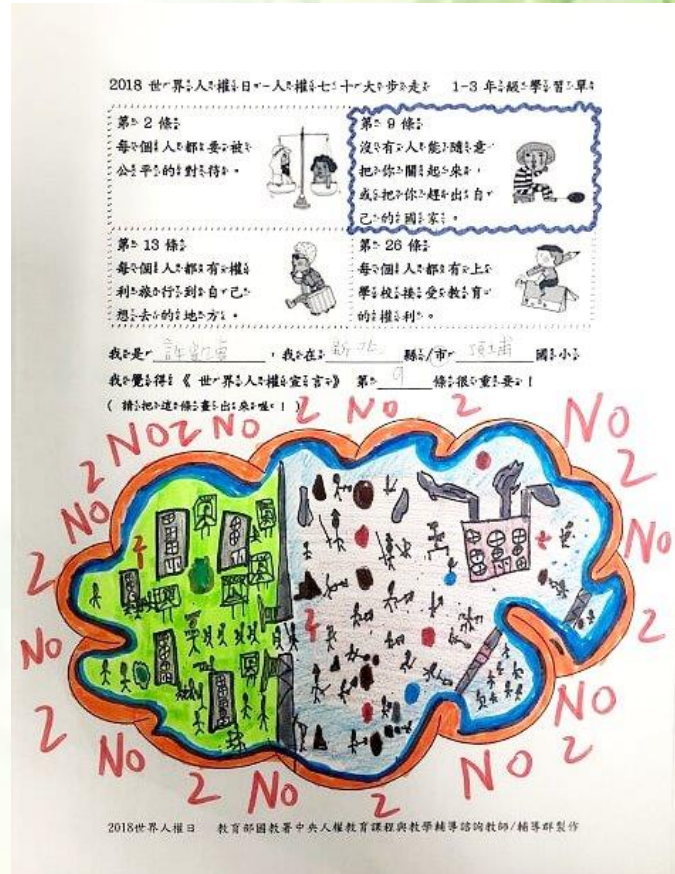 2018 世界人權日－人權七十大步走 1-3 年級學習單
第 2 條
每個人都要被
公平的對待。
第 9 條
沒有人能隨意
把你關起來，
或把你趕出自
己的國家。
第 13 條
每個人都有權
利旅行到自己
想去的地方。
第 26 條
每個人都有上
學校接受教育
的權利。
我是，我在 新北 縣/市 頂埔 國小
我覺得《世界人權宣言》第 9 條很重要！
（請把這條畫出來喔！）
NO 2 NO 2 NO 2 NO
2 2
NO NO
2 2
NO NO
2 NO 2 NO 2 NO 2
2018世界人權日 教育部國教署中央人權教育課程與教學輔導諮詢教師/輔導群製作